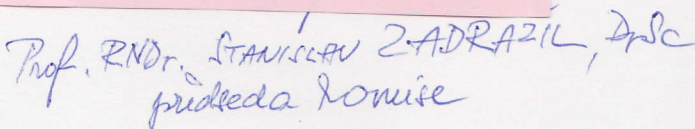 Prof. RNDr. STANISLAV ZADRAŽIL, DrSc
předseda komise